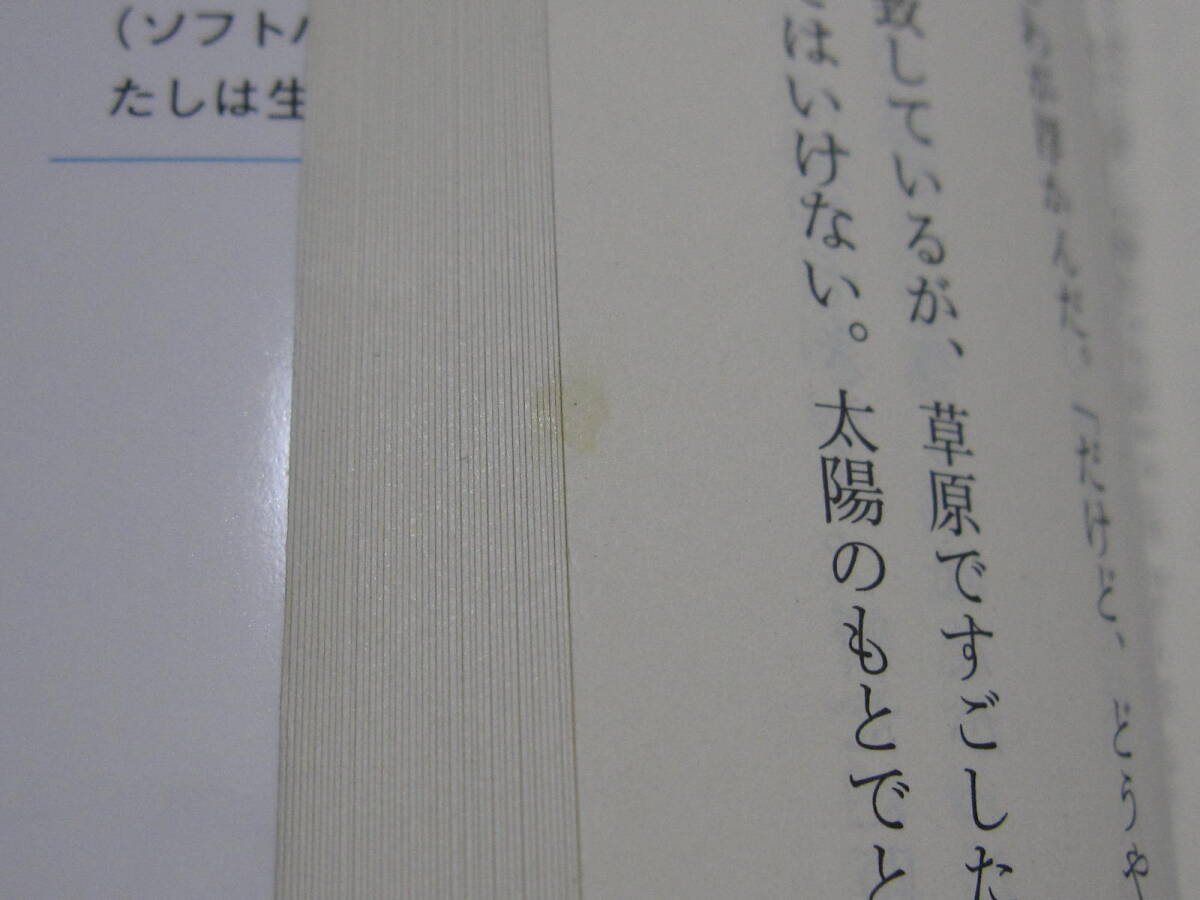 んだ。「だけど、どうや
致しているが、草原ですごした
はいけない。太陽のもとでと
(ソフト
たしは生